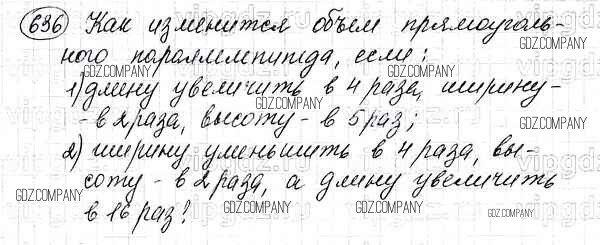 636 Как изменится объем прямоуголь-
ного параллелепипеда, если:
1) длину увеличить в 4 раза, ширину -
- в 2 раза, высоту - в 5 раз;
2) ширину уменьшить в 4 раза, вы-
соту - в 2 раза, а длину увеличить
в 16 раз?
GDZ.COMPANY
GDZ.COMPANY
GDZ.COMPANY
GDZ.COMPANY
GDZ.COMPANY
GDZ.COMPANY
GDZ.COMPANY
GDZ.COMPANY
GDZ.COMPANY
GDZ.COMPANY